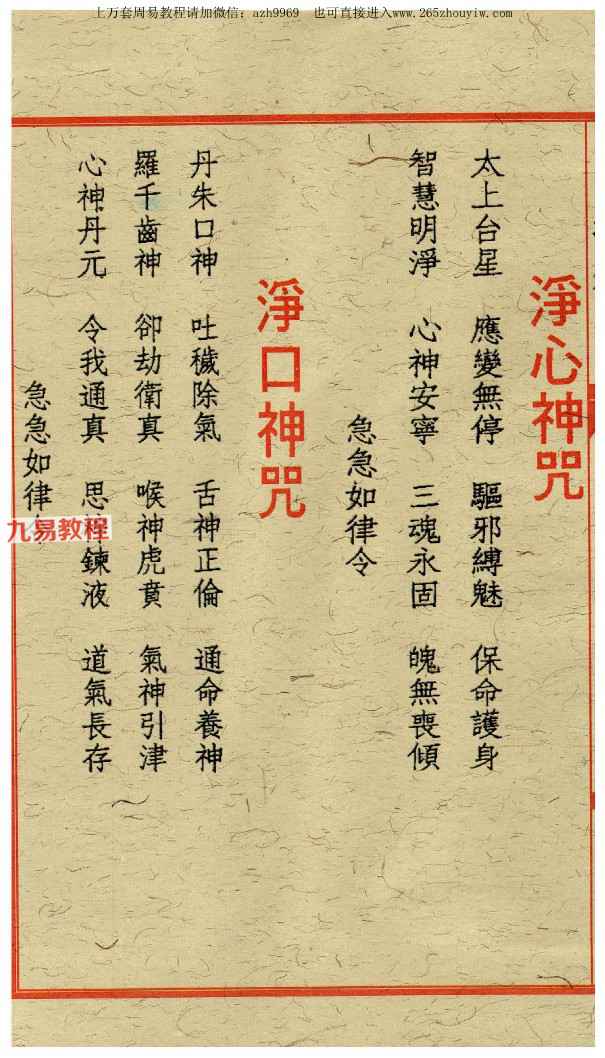 上万套周易教程请加微信：azh9969 也可直接进入www.265zhouyiw.com
淨心神咒
太上台星 應變無停 驅邪縛魅 保命護身
智慧明淨 心神安寧 三魂永固 魄無喪傾
急急如律令
淨口神咒
丹朱口神 吐穢除氣 舌神正倫 通命養神
羅千齒神 卻劫衛真 喉神虎賁 氣神引津
心神丹元 令我通真 思 鍊液 道氣長存
急急如律
九易教程